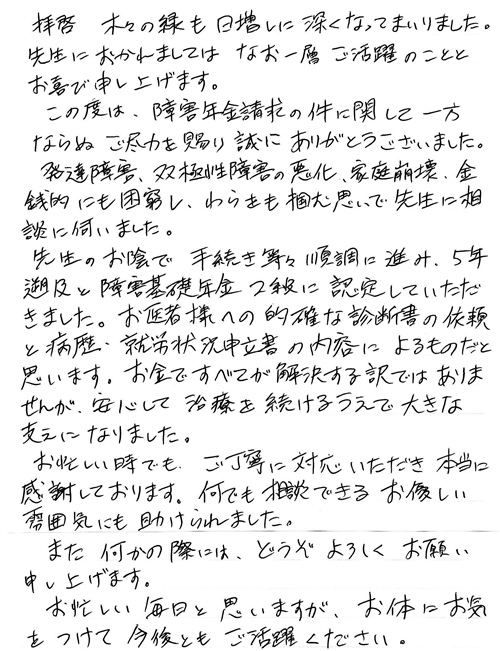 拝啓 木々の緑も日増しに深くなってまいりました。
先生におかれましては なお一層 ご活躍のことと
お喜び申し上げます。
この度は、障害年金請求の件に関して一方
ならぬ ご尽力を賜り誠に ありがとうございました。
発達障害、双極性障害の悪化、家庭崩壊、金
銭的にも困窮し、わらをも掴む思いで先生に相
談に伺いました。
先生のお陰で 手続き等々順調に進み、5年
遡及と障害基礎年金2級に認定していただ
きました。お医者様への的確な診断書の依頼
と病歴・就労状況申立書の内容によるものだと
思います。お金ですべてが解決する訳ではありま
せんが、安心して治療を続けるうえで大きな
支えになりました。
お忙しい時でも、ご丁寧に対応いただき本当に
感謝しております。何でも相談できるお優しい
雰囲気にも助けられました。
また何かの際には、どうぞよろしくお願い
申し上げます。
お忙しい毎日と思いますが、お体にお気
をつけて今後ともご活躍ください。